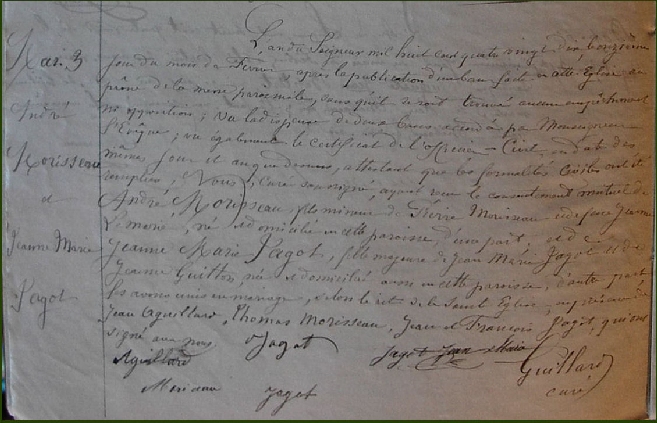 Mar. 3
André
Morisseau
et
Jeanne Marie
Jagot
L'an du Seigneur mil huit cent quatre vingt dix, le onzième
jour du mois de Février, après la publication d'un ban faite en cette Eglise au
prône de la messe paroissiale, sans qu'il se soit trouvé aucun empêchement
ni opposition; Vu la dispense de deux bans accordée par Monseigneur
l'Evêque; vu également le certificat de l'Officier-Civil en date des
même jour et an que dessus, attestant que les formalités civiles ont été
remplies; Nous, Curé soussigné, ayant reçu le consentement mutuel de
André Morisseau, fils mineur de Pierre Morisseau et de feue Jeanne
né et domicilié en cette paroisse, d'une part, et de
Jeanne Marie Jagot, fille majeure de Jean Marie Jagot et de
Jeanne Guitton, née et domiciliée aussi en cette paroisse, d'autre part
les avons unis en mariage, selon le rit de la Sainte Eglise, en présence de
Jean Aguillard, Thomas Morisseau, Jean et François Jagot, qui ont
signé avec nous.
Aguillard Jagot Jagot Jean Marie Guillard
Morisseau Jagot curé